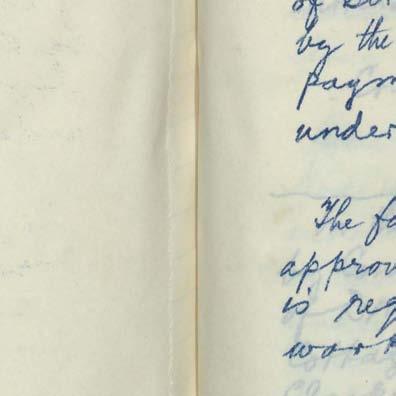 of
by the
paym
under
The fa
approv
is req
work